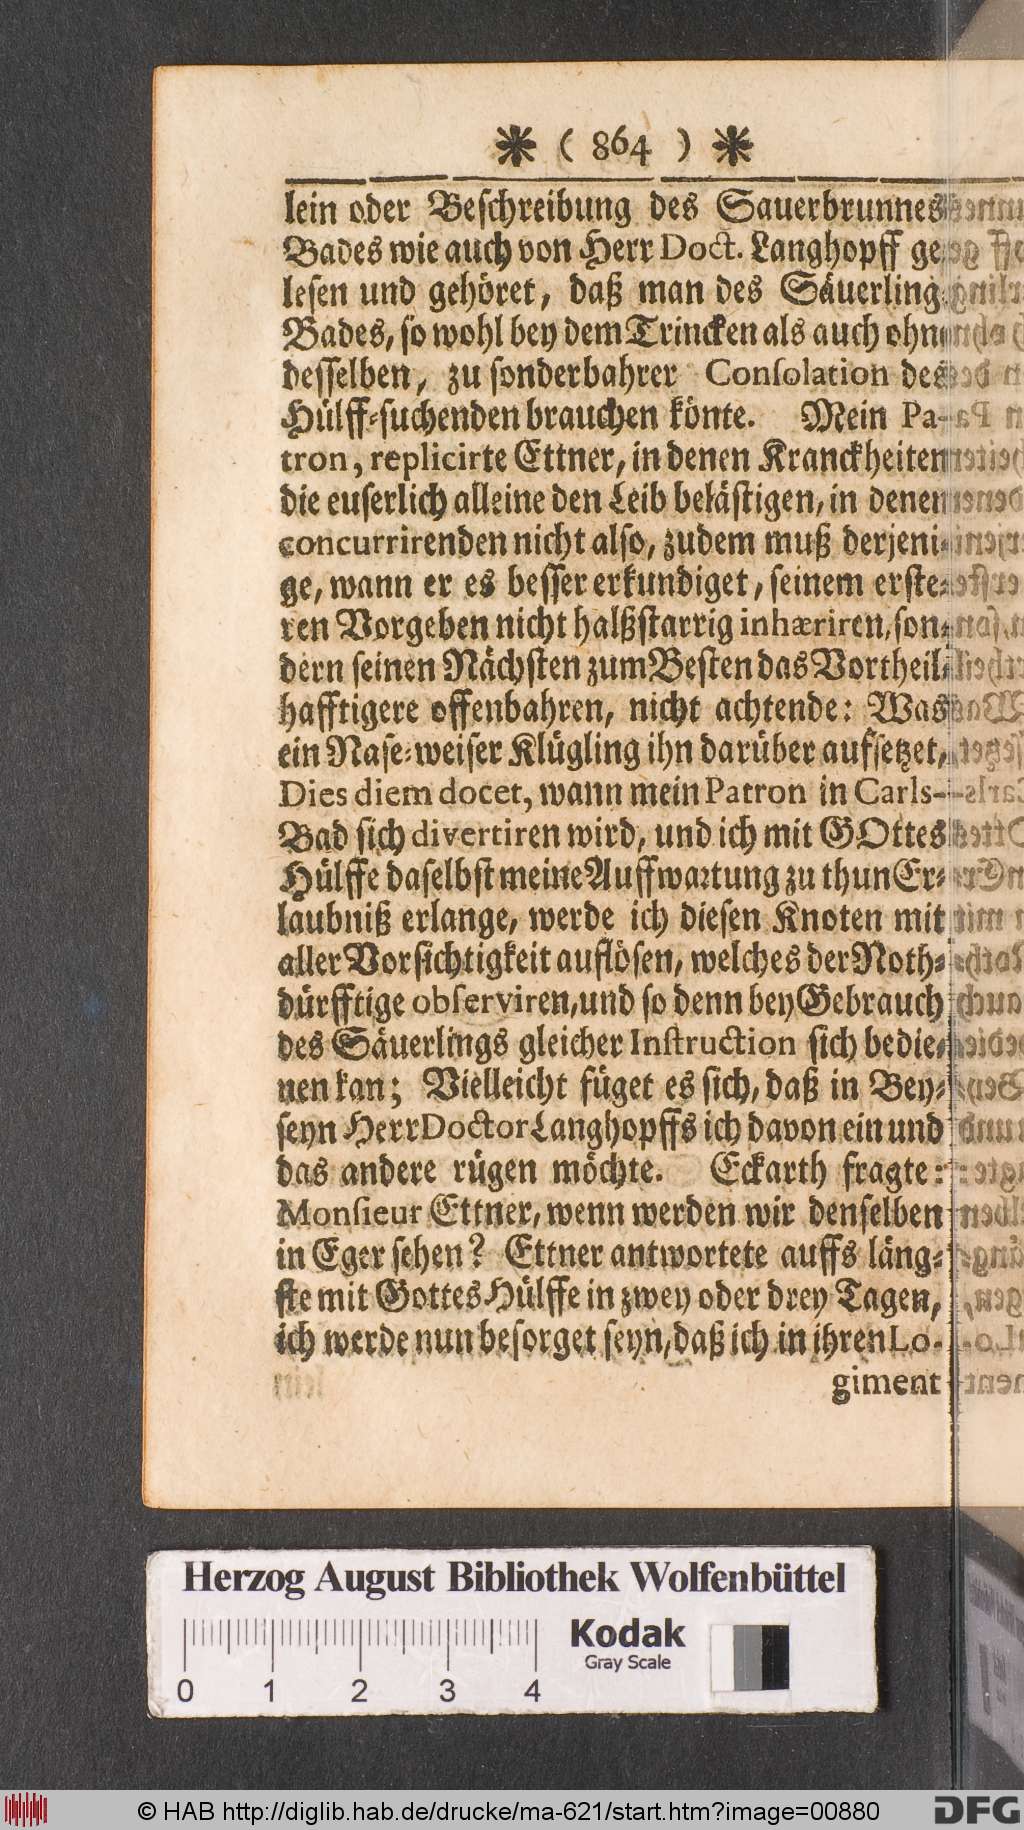 * ( 864 ) *
lein oder Beschreibung des Sauerbrunnes
Bades wie auch von Herr Doct. Langhopff ge-
lesen und gehöret, daß man des Säuerling-
Bades, so wohl bey dem Trincken als auch ohn
desselben, zu sonderbahrer Consolation des
Hülff-suchenden brauchen könte. Mein Pa-
tron, replicirte Ettner, in denen Kranckheiten
die euserlich alleine den Leib belästigen, in denen
concurrirenden nicht also, zudem muß derjeni-
ge, wann er es besser erkundiget, seinem erste-
ren Vorgeben nicht halßstarrig inhæriren, son-
dern seinen Nächsten zum Besten das Vortheil-
hafftigere offenbahren, nicht achtende: Was
ein Nase-weiser Klügling ihn darüber aufsetzet,
Dies diem docet, wann mein Patron in Carls-
Bad sich divertiren wird, und ich mit GOttes
Hülffe daselbst meine Auffwartung zu thun Er-
laubniß erlange, werde ich diesen Knoten mit
aller Vorsichtigkeit auflösen, welches der Noth-
dürfftige observiren, und so denn bey Gebrauch
des Säuerlings gleicher Instruction sich bedie-
nen kan; Vielleicht füget es sich, daß in Bey-
seyn Herr Doctor Langhopffs ich davon ein und
das andere rügen möchte. Eckarth fragte:
Monsieur Ettner, wenn werden wir denselben
in Eger sehen? Ettner antwortete auffs läng-
ste mit Gottes Hülffe in zwey oder drey Tagen,
ich werde nun besorget seyn, daß ich in ihren Lo-
giment
Herzog August Bibliothek Wolfenbüttel
Kodak
Gray Scale
0 1 2 3 4
© HAB http://diglib.hab.de/drucke/ma-621/start.htm?image=00880
DFG